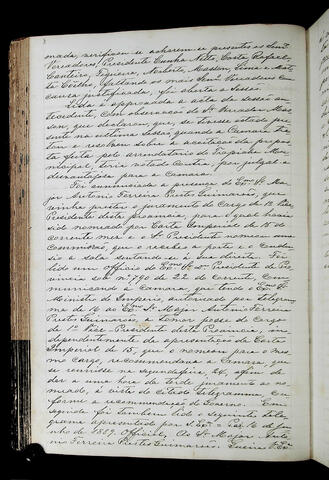 mada, verificou se acharem se presentes os Senrs.
Vereadores, Presidente Cunha Netto, Costa, Rafael,
Canteiro, Figueira, Norberto, Masson, Lima e Mat-
ta Coêlho, faltando os mais Senrs. Vereadores com
causa justificada, foi aberta a sessão.
Lida e approvada a acta da sessão an-
tecedente, com observação do Sr. Vereador Mas-
son, que declarou que, se tivesse estado pre-
sente na ultima sessão quando a Camara tra-
tou e resolveu sobre a aceitação da propos-
ta feita pelo arrendatario do Trapiche Mu-
nicipal, seria votado contra, por julgal-a
desvantajosa para a Camara.
Foi annunciada a presença do Exmo. Sr. Ma-
jor Antonio Ferreira Prestes Guimarães, que
vinha prestar o juramento do cargo de 1º Vice
Presidente desta provincia, para o qual havia
sido nomeado por Carta Imperial de 15 do
corrente mez e o Sr. Presidente nomeou uma
commissão, que o recebeo á porta e o condu-
sio á sala sentando-se á sua direita. Foi
lido um officio do Exmo. Sr. Presidente da Pro-
vincia sob nº 790 de 22 do corrente, com-
municando á Camara, que tendo o Exmo. Sr.
Ministro do Imperio, autorisado por telegram-
ma de 16 ao Exmo. Sr. Major Antonio Ferreira
Prestes Guimarães a tomar posse do cargo
de 1º Vice-Presidente desta Provincia, in-
dependentemente de apresentação da Carta
Imperial de 15, que o nomeou para o mes-
mo cargo, recommendava á Camara, que
se reunisse na segunda feira, 24, afim de
der a uma hora da tarde juramento ao no-
meado, á vista do citado telegramma, con-
forme a recommendação do Governo. Em
seguida foi tambem lido o seguinte tele-
gramma apresentado por S. Exa. = Côrte 16 de Ju-
nho de 1889. Official, Ao Sr. Major Anto-
nio Ferreira Prestes Guimarães. Queira V. Exa.